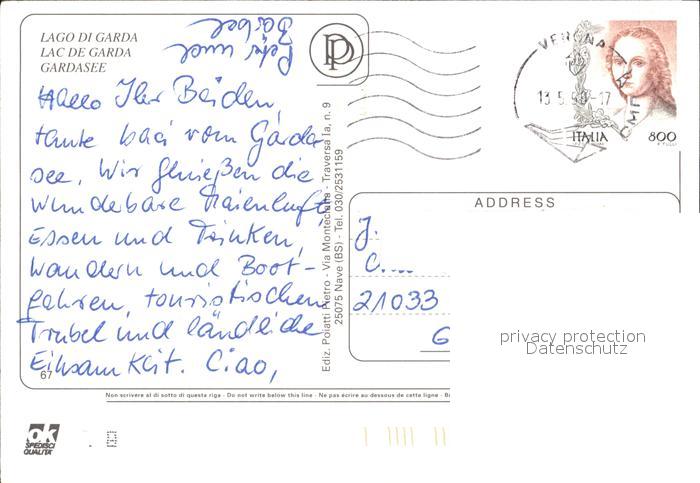 LAGO DI GARDA
LAC DE GARDA
GARDASEE
Hallo Ihr Beiden,
tante baci vom Garda-
see. Wir genießen die
wunderbare Maienluft,
Essen und Trinken,
Wandern und Boot-
fahren, touristischen
Trubel und ländliche
Einsamkeit. Ciao,
Peter und
Bärbel
67
Ediz. Poiatti Pietro - Via Monteclana - Traversa Ia, n. 9
25075 Nave (BS) - Tel. 030/2531159
VERONA
13.5.98-17
ITALIA
800
ADDRESS
J.
C....
21033
G
privacy protection
Datenschutz
Non scrivere al di sotto di questa riga - Do not write below this line - Ne pas écrire au dessous de cette ligne - B
ok
SPEDISCI
QUALITA'